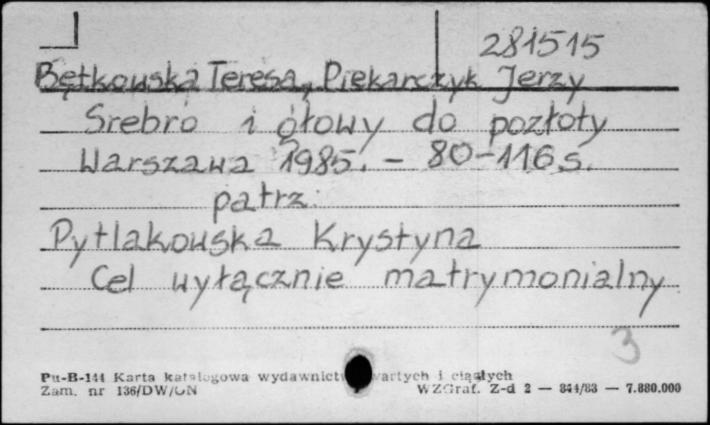 281515
Bętkowska Teresa, Piekarczyk Jerzy
Srebro i głowy do pozłoty
Warszawa 1985. - 80-116 s.
patrz:
Pytlakowska Krystyna
Cel wyłącznie matrymonialny
3
Pu-B-144 Karta katalogowa wydawnict wartych i ciągłych
Zam. nr 136/DW/UN WZGraf. Z-d 2 — 844/83 — 7.880.000